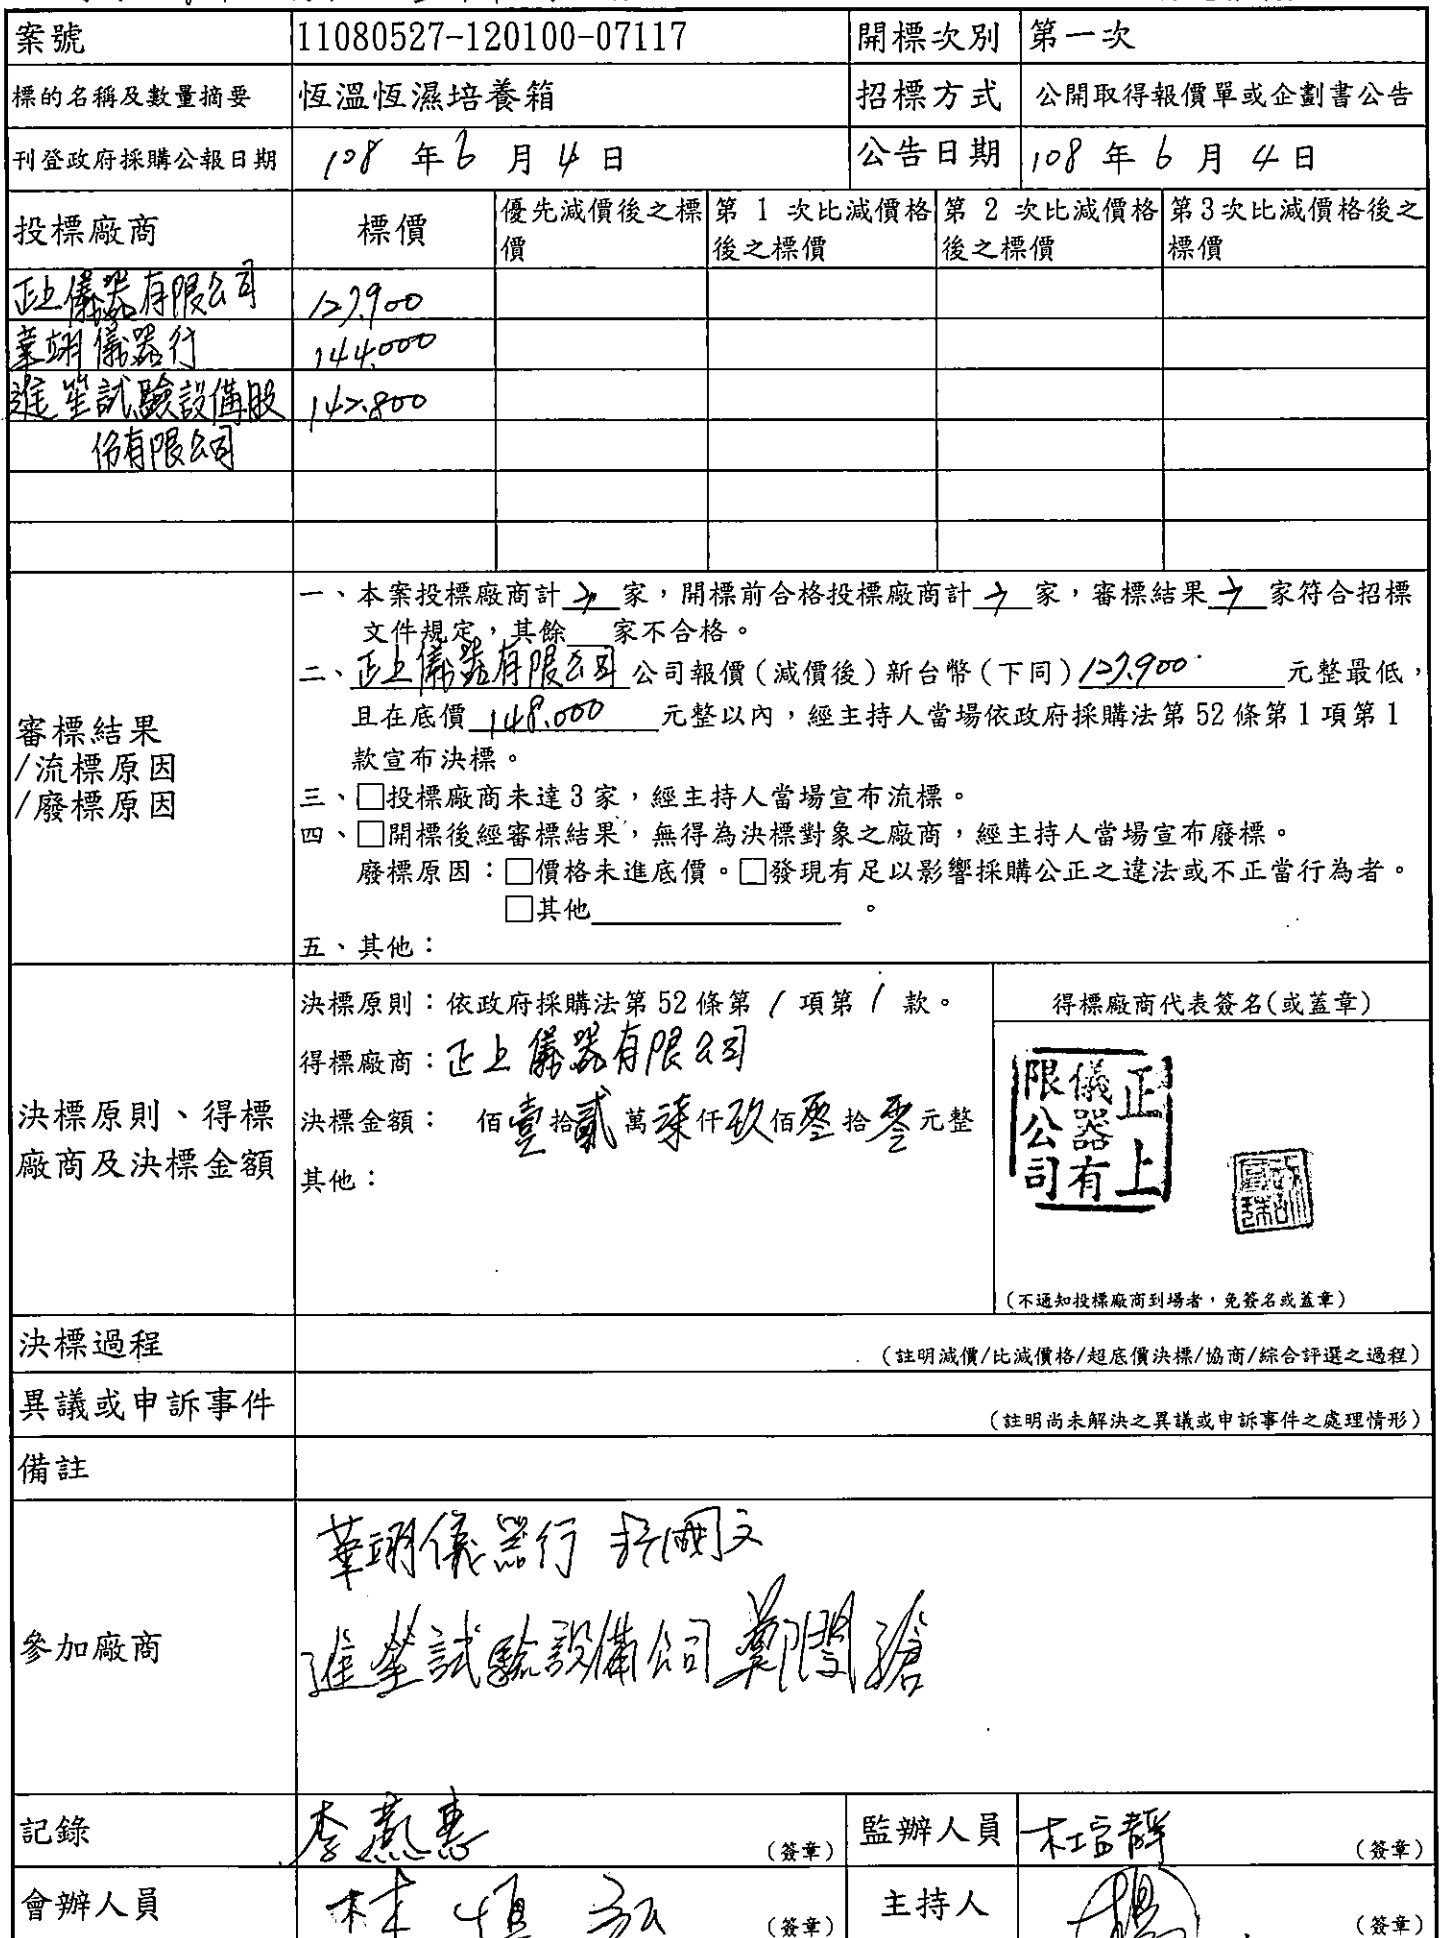 案號 11080527-120100-07117 開標次別 第一次
標的名稱及數量摘要 恆溫恆濕培養箱 招標方式 公開取得報價單或企劃書公告
刊登政府採購公報日期 108 年 6 月 4 日 公告日期 108 年 6 月 4 日
投標廠商 標價 優先減價後之標價 第 1 次比減價格後之標價 第 2 次比減價格後之標價 第3次比減價格後之標價
正上儀器有限公司 127,900
葦翊儀器行 144,000
進笙試驗設備股 142,800
份有限公司
審標結果
/流標原因
/廢標原因
一、本案投標廠商計 3 家,開標前合格投標廠商計 3 家,審標結果 3 家符合招標
文件規定,其餘 家不合格。
二、正上儀器有限公司 公司報價(減價後)新台幣(下同)127,900 元整最低,
且在底價 148,000 元整以內,經主持人當場依政府採購法第 52 條第 1 項第 1
款宣布決標。
三、□投標廠商未達 3 家,經主持人當場宣布流標。
四、□開標後經審標結果,無得為決標對象之廠商,經主持人當場宣布廢標。
廢標原因:□價格未進底價。□發現有足以影響採購公正之違法或不正當行為者。
□其他 。
五、其他:
決標原則、得標
廠商及決標金額
決標原則:依政府採購法第 52 條第 1 項第 1 款。
得標廠商:正上儀器有限公司
決標金額: 佰壹拾貳萬柒仟玖佰零拾零元整
其他:
得標廠商代表簽名(或蓋章)
正上
儀器有
限公司
(不通知投標廠商到場者,免簽名或蓋章)
決標過程 (註明減價/比減價格/超底價決標/協商/綜合評選之過程)
異議或申訴事件 (註明尚未解決之異議或申訴事件之處理情形)
備註
參加廠商
葦翊儀器行
進笙試驗設備公司
記錄 李燕惠 (簽章) 監辦人員 (簽章)
會辦人員 林恆弘 (簽章) 主持人 (簽章)